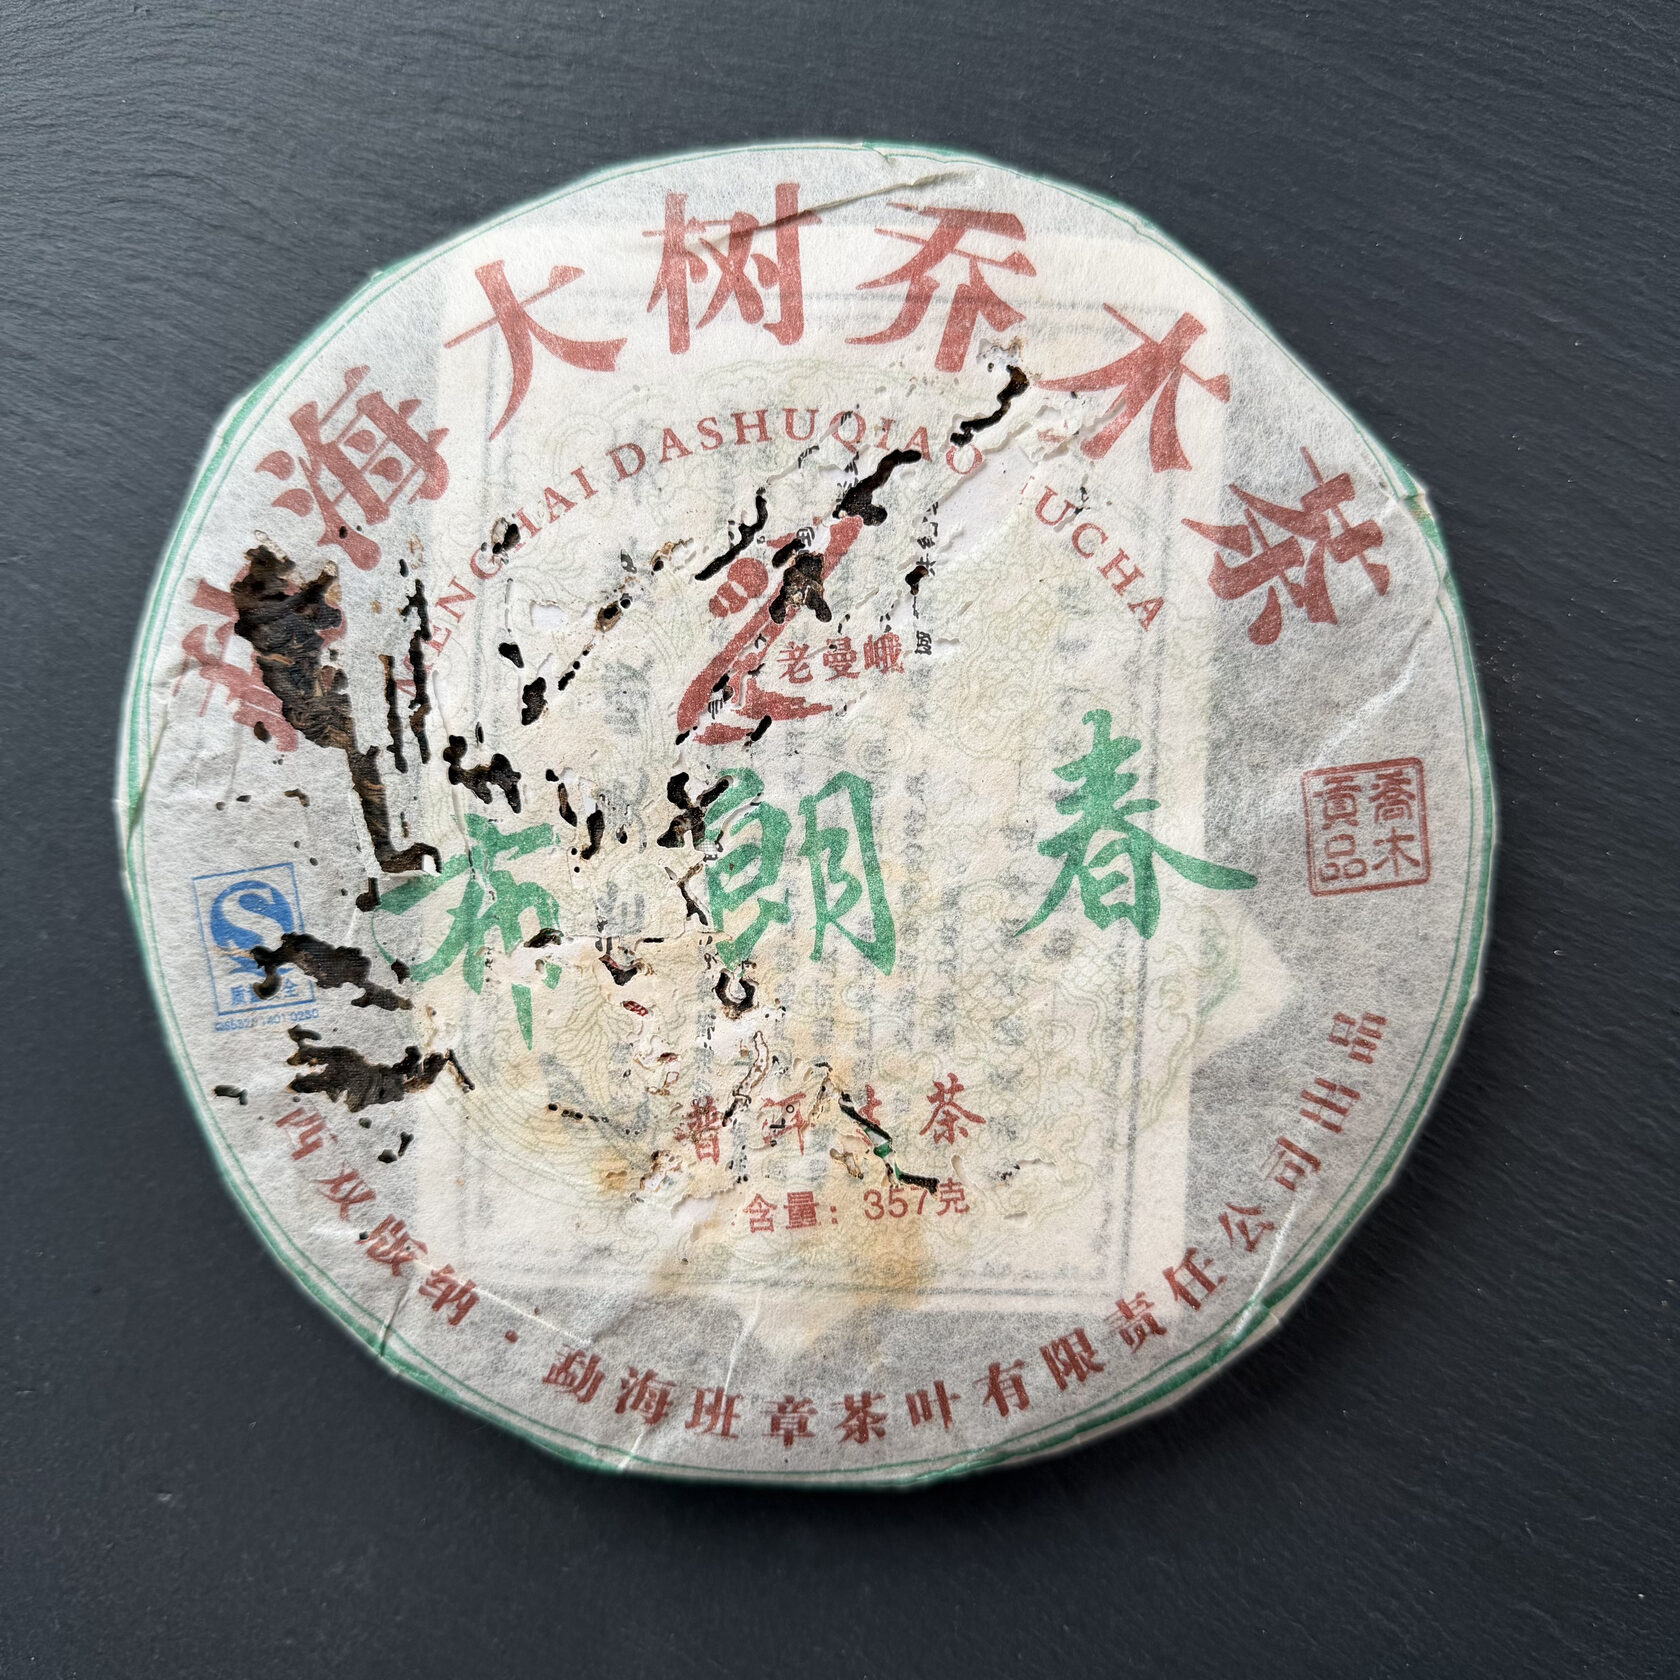 勐海大树乔木茶
MENGHAI DASHUQIAO MUCHA
老曼峨
布朗春
喬木
貢品
质量安全
普洱生茶
含量：357克
西双版纳·勐海班章茶叶有限责任公司出品